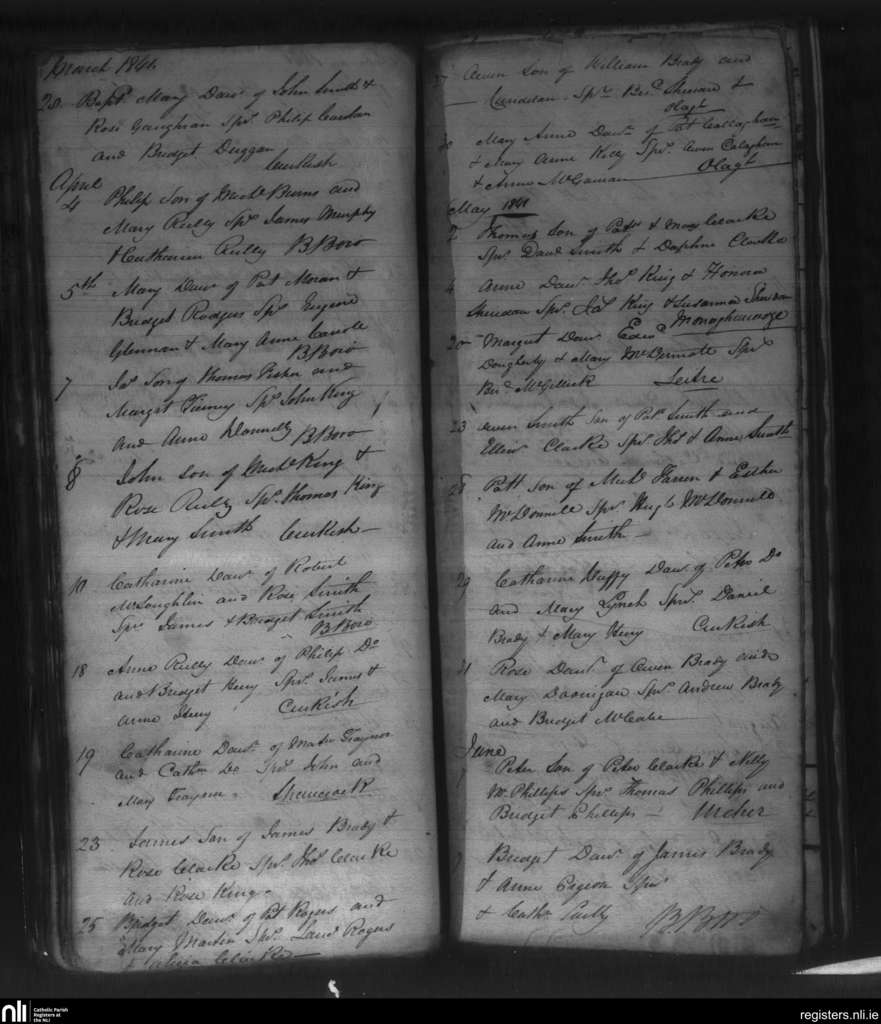 March 1841.
20. Bapt. Mary Daur. of John Smith &
Rose Gaughran Spr. Philip
and Bridget Duggan
Curkish
April
4 Philip Son of Michl. Burns and
Mary Reilly Spr. James Murphy
& Catharine Reilly B Boro
5th Mary Daur. of Pat Moran &
Bridget Rodgers Sprs. Eugene
Glennan & Mary Anne
B Boro
7 Jas. Son of Thomas and
Margt. Tierney Spr. John King
and Anne Donnelly B Boro
8 John Son of Michl. King &
Rose Reilly Spr. Thomas King
& Mary Smith Curkish
10 Catharine Daur. of Robert
McLoughlin and Rose Smith
Sprs. James & Bridget Smith
B Boro
18 Anne Reilly Daur. of Philip Do
and Bridget Heny Sprs. James &
Anne Heny Curkish
19 Catharine Daur. of Traynor
and Cathn. Do Sprs. John and
Mary Traynor.
23 James Son of James Brady &
Rose Clarke Spr. Thos. Clarke
and Rose King.
25 Bridget Daur. of Pat Rogers and
Mary Martin Spr. Laur. Rogers
& Alicia Clarke
27 Owen Son of William Brady and
Spr. Brid. Sheridan &
Olagt
Mary Anne Daur. of Pat Callaghan
& Mary Anne Kelly Sprs. Owen Calaghan
& Anne McGawran Olagt
May 1841
2 Thomas Son of Patt & Mary Clarke
Spr. David Smith & Daphne Clarke
4 Anne Daur. Thos. King & Honora
Sheridan Sprs. Jas. King & Susanna Sheridan
20 Margret Daur. Edwd.
Dougherty & Mary McDermott Spr.
Brid. McGillick Leitre
23 Owen Smith Son of Patt. Smith and
Ellen Clarke Spr. Thos. & Anne Smith
Patt Son of Michl. Farren & Esther
McDonnell Sprs. Hugh McDonnell
and Anne Smith
29 Catharine Duffy Daur. of Peter Do
and Mary Lynch Sprs. Daniel
Brady & Mary Heny Curkish
31 Rose Daur. of Owen Brady and
Mary Spr. Andrew Brady
and Bridget McCabe
June
1 Peter Son of Peter Clarke & Nelly
McPhillips Sprs. Thomas Phillips and
Bridget Phillips
Bridget Daur. of James Brady
& Anne Pigeon Sprs
& Cathn. B Boro
nli
Catholic Parish
Registers at
the NLI
registers.nli.ie